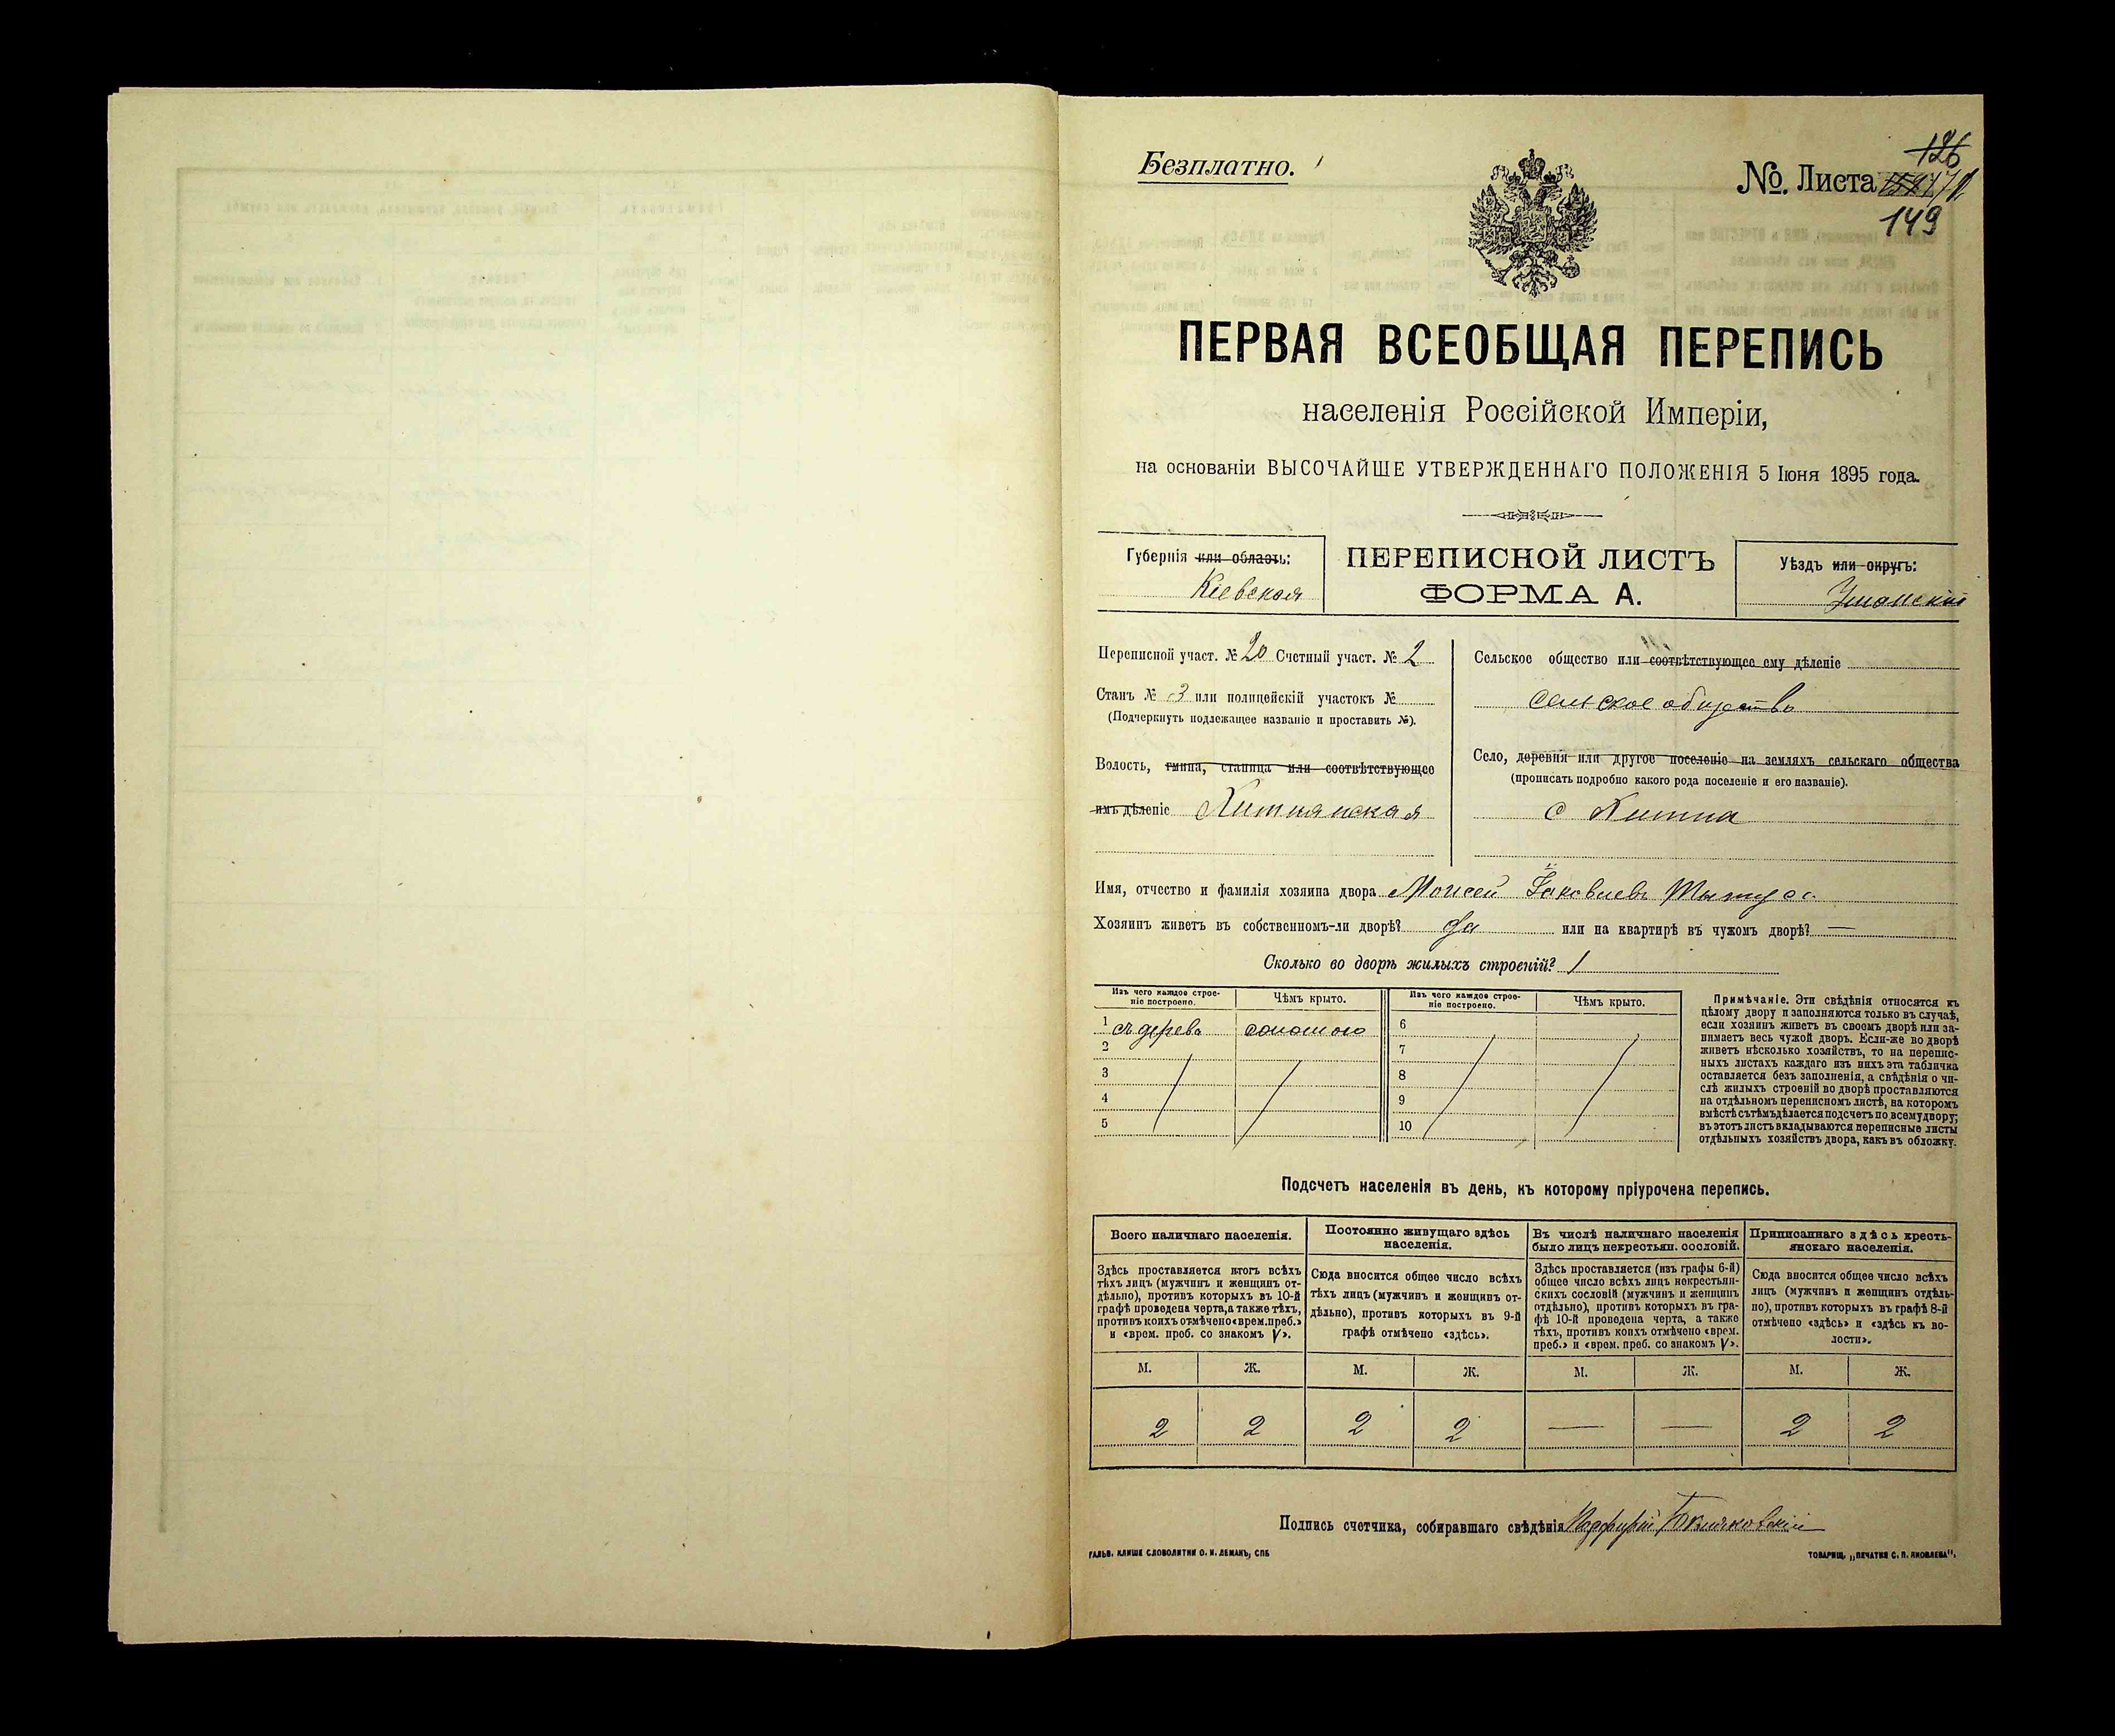 Безплатно.
126
№. Листа
149
ПЕРВАЯ ВСЕОБЩАЯ ПЕРЕПИСЬ
населенія Россійской Имперіи,
на основаніи ВЫСОЧАЙШЕ УТВЕРЖДЕННАГО ПОЛОЖЕНІЯ 5 Іюня 1895 года.
Губернія или область:
Кіевская
ПЕРЕПИСНОЙ ЛИСТЪ
ФОРМА А.
Уѣздъ или округъ:
Уманскій
Переписной участ. № 20 Счетный участ. № 2
Станъ № 3 или полицейскій участокъ №
(Подчеркнуть подлежащее названіе и проставить №).
Волость, гмина, станица или соотвѣтствующее
имъ дѣленіе Хитнянская
Сельское общество или соотвѣтствующее ему дѣленіе
сельское общество
Село, деревня или другое поселеніе на земляхъ сельскаго общества
(прописать подробно какого рода поселеніе и его названіе).
с
Имя, отчество и фамилія хозяина двора Моисей Іаковлевъ
Хозяинъ живетъ въ собственномъ-ли дворѣ? Да или на квартирѣ въ чужомъ дворѣ? —
Сколько во дворѣ жилыхъ строеній? 1
Изъ чего каждое строеніе построено.
Чѣмъ крыто.
Изъ чего каждое строеніе построено.
Чѣмъ крыто.
1 съ дерева соломою 6
2 7
3 8
4 9
5 10
Примѣчаніе. Эти свѣдѣнія относятся къ
цѣлому двору и заполняются только въ случаѣ,
если хозяинъ живетъ въ своемъ дворѣ или за-
нимаетъ весь чужой дворъ. Если-же во дворѣ
живетъ нѣсколько хозяйствъ, то на перепис-
ныхъ листахъ каждаго изъ нихъ эта табличка
оставляется безъ заполненія, а свѣдѣнія о чи-
слѣ жилыхъ строеній во дворѣ проставляются
на отдѣльномъ переписномъ листѣ, на которомъ
вмѣстѣ съ тѣмъ дѣлается подсчетъ по всему двору;
въ этотъ листъ вкладываются переписные листы
отдѣльныхъ хозяйствъ двора, какъ въ обложку.
Подсчетъ населенія въ день, къ которому пріурочена перепись.
Всего наличнаго населенія.
Здѣсь проставляется итогъ всѣхъ
тѣхъ лицъ (мужчинъ и женщинъ от-
дѣльно), противъ которыхъ въ 10-й
графѣ проведена черта, а также тѣхъ,
противъ коихъ отмѣчено «врем. преб.»
и «врем. преб. со знакомъ V».
Постоянно живущаго здѣсь
населенія.
Сюда вносится общее число всѣхъ
тѣхъ лицъ (мужчинъ и женщинъ от-
дѣльно), противъ которыхъ въ 9-й
графѣ отмѣчено «здѣсь».
Въ числѣ наличнаго населенія
было лицъ некрестьян. сословій.
Здѣсь проставляется (изъ графы 6-й)
общее число всѣхъ лицъ некрестьян-
скихъ сословій (мужчинъ и женщинъ
отдѣльно), противъ которыхъ въ гра-
фѣ 10-й проведена черта, а также
тѣхъ, противъ коихъ отмѣчено «врем.
преб.» и «врем. преб. со знакомъ V».
Приписаннаго здѣсь кресть-
янскаго населенія.
Сюда вносится общее число всѣхъ
лицъ (мужчинъ и женщинъ отдѣль-
но), противъ которыхъ въ графѣ 8-й
отмѣчено «здѣсь» и «здѣсь къ во-
лости».
М. Ж. М. Ж. М. Ж. М. Ж.
2 2 2 2 — — 2 2
Подпись счетчика, собиравшаго свѣдѣнія
ГАЛЬВ. КЛИШЕ СЛОВОЛИТНИ О. И. ЛЕМАНЪ, СПБ
ТОВАРИЩ. „ПЕЧАТНЯ С. П. ЯКОВЛЕВА".